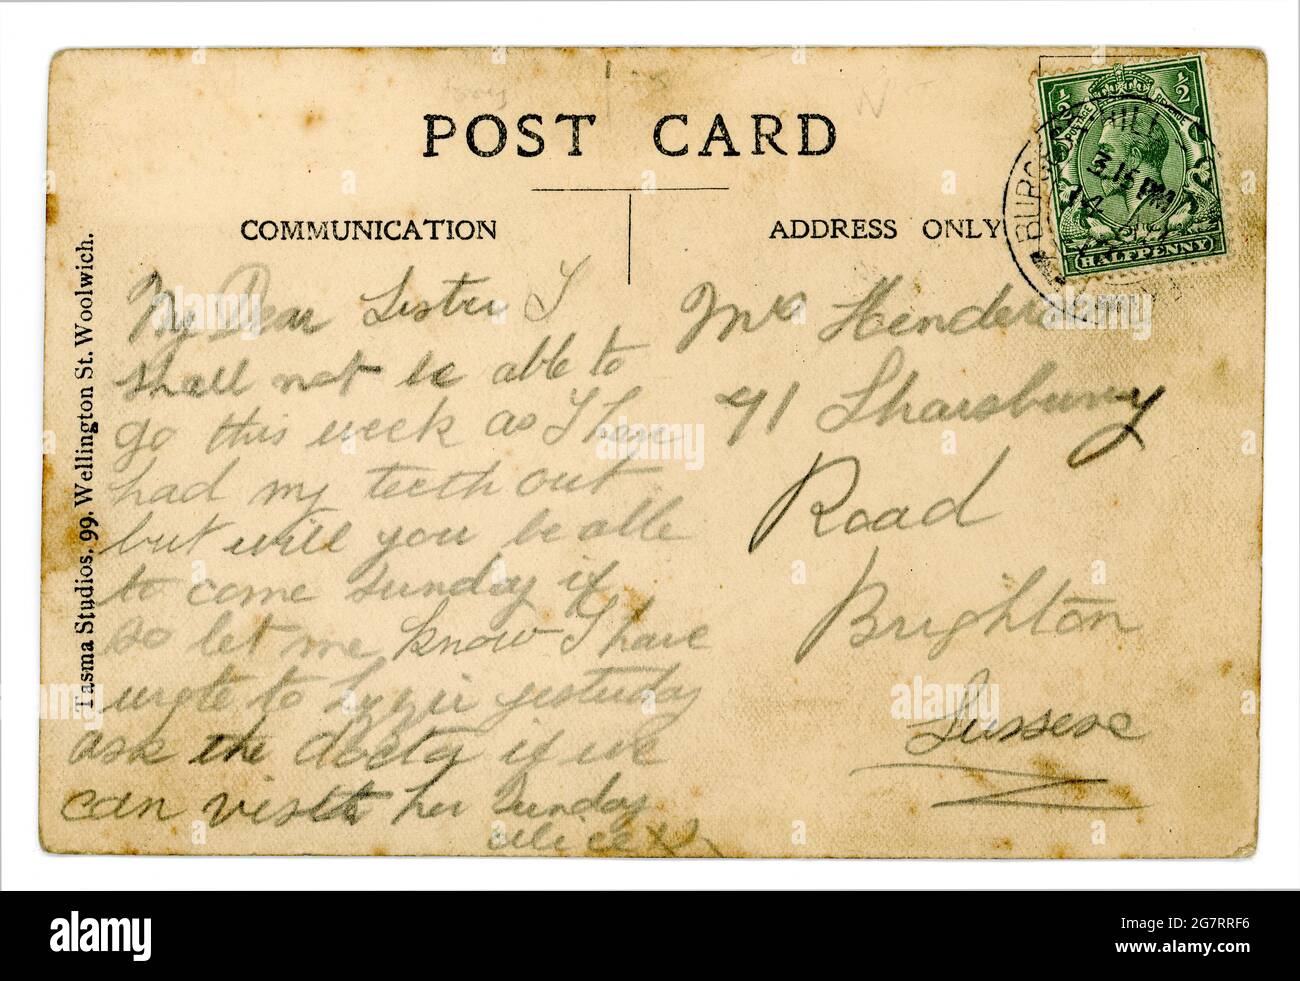 POST CARD
COMMUNICATION
ADDRESS ONLY
Tasma Studios, 99, Wellington St. Woolwich.
My Dear Sister I
shall not be able to
go this week as I have
had my teeth out
but will you be able
to come Sunday if
so let me know I have
wrote to Lizzie yesterday
ask the doctor if we
can visit her Sunday
Alice XX
Mrs Henderson
91 Sharsbury
Road
Brighton
Sussex
1/2 1/2
POSTAGE REVENUE
HALFPENNY
BURGESS HILL
3.15 PM
14
alamy
Image ID: 2G7RRF6
www.alamy.com